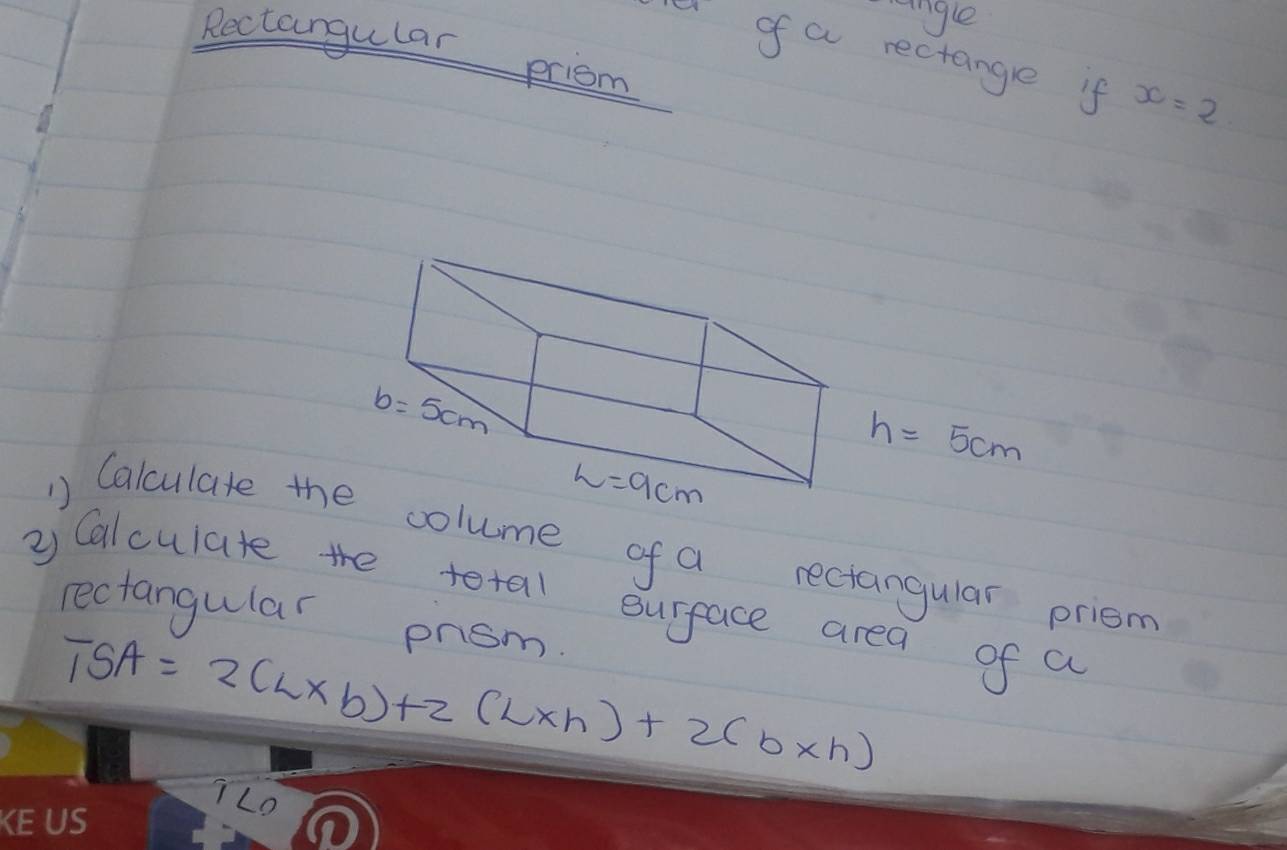 of a rectangle if x = 2
Rectangular prism
b = 5cm
h = 5cm
L = 9cm
1) Calculate the volume of a rectangular prism
2) Calculate the total surface area of a
rectangular prism.
TSA = 2(L×b)+2(L×h) + 2(b×h)
KE US